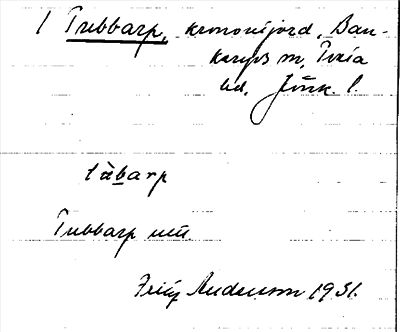 1 Tubbarp, kronoutjord, Ban-
karyds sn, Tveta
hd, Jönk. l.
tùbarp
Tubbarp uttl
Fritz Anderson 1931.